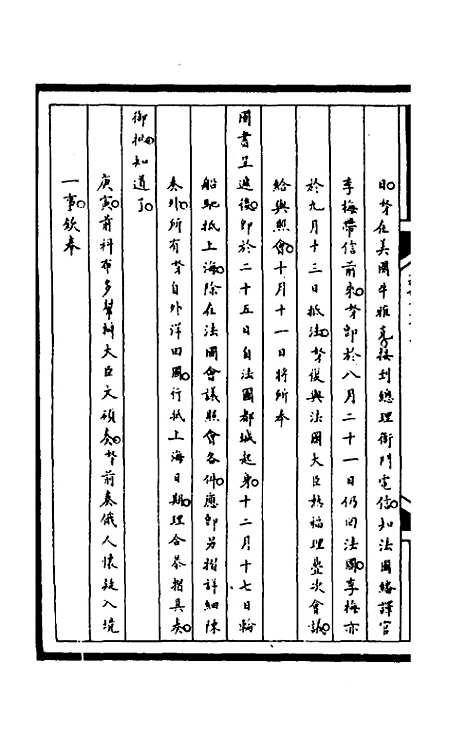 日奴才在美國牛雅克接到總理衙門電信知法國繙譯官
李梅帶信前來奴才即於八月二十一日仍回法國李梅亦
於九月十三日抵法奴才復與法國大臣熱福理疊次會議
給與照會十月十一日將所奉
國書呈遞後即於二十五日自法國都城起身十二月十七日輪
船馳抵上海除在法國會議照會各件應即另摺詳細陳
奏外所有奴才自外洋回國行抵上海日期理合恭摺具奏
御批知道了
庚寅前科布多幫辦大臣文碩奏奴才前奏俄人懷疑入境
一事欽奉